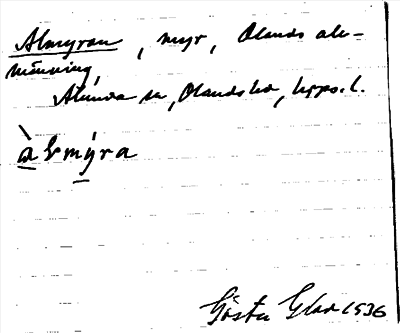 Almyran, myr, Olands all-
männing,
Alunda sn, Olands hd, Upps. l.
àlmýra
Gösta Glad 1936